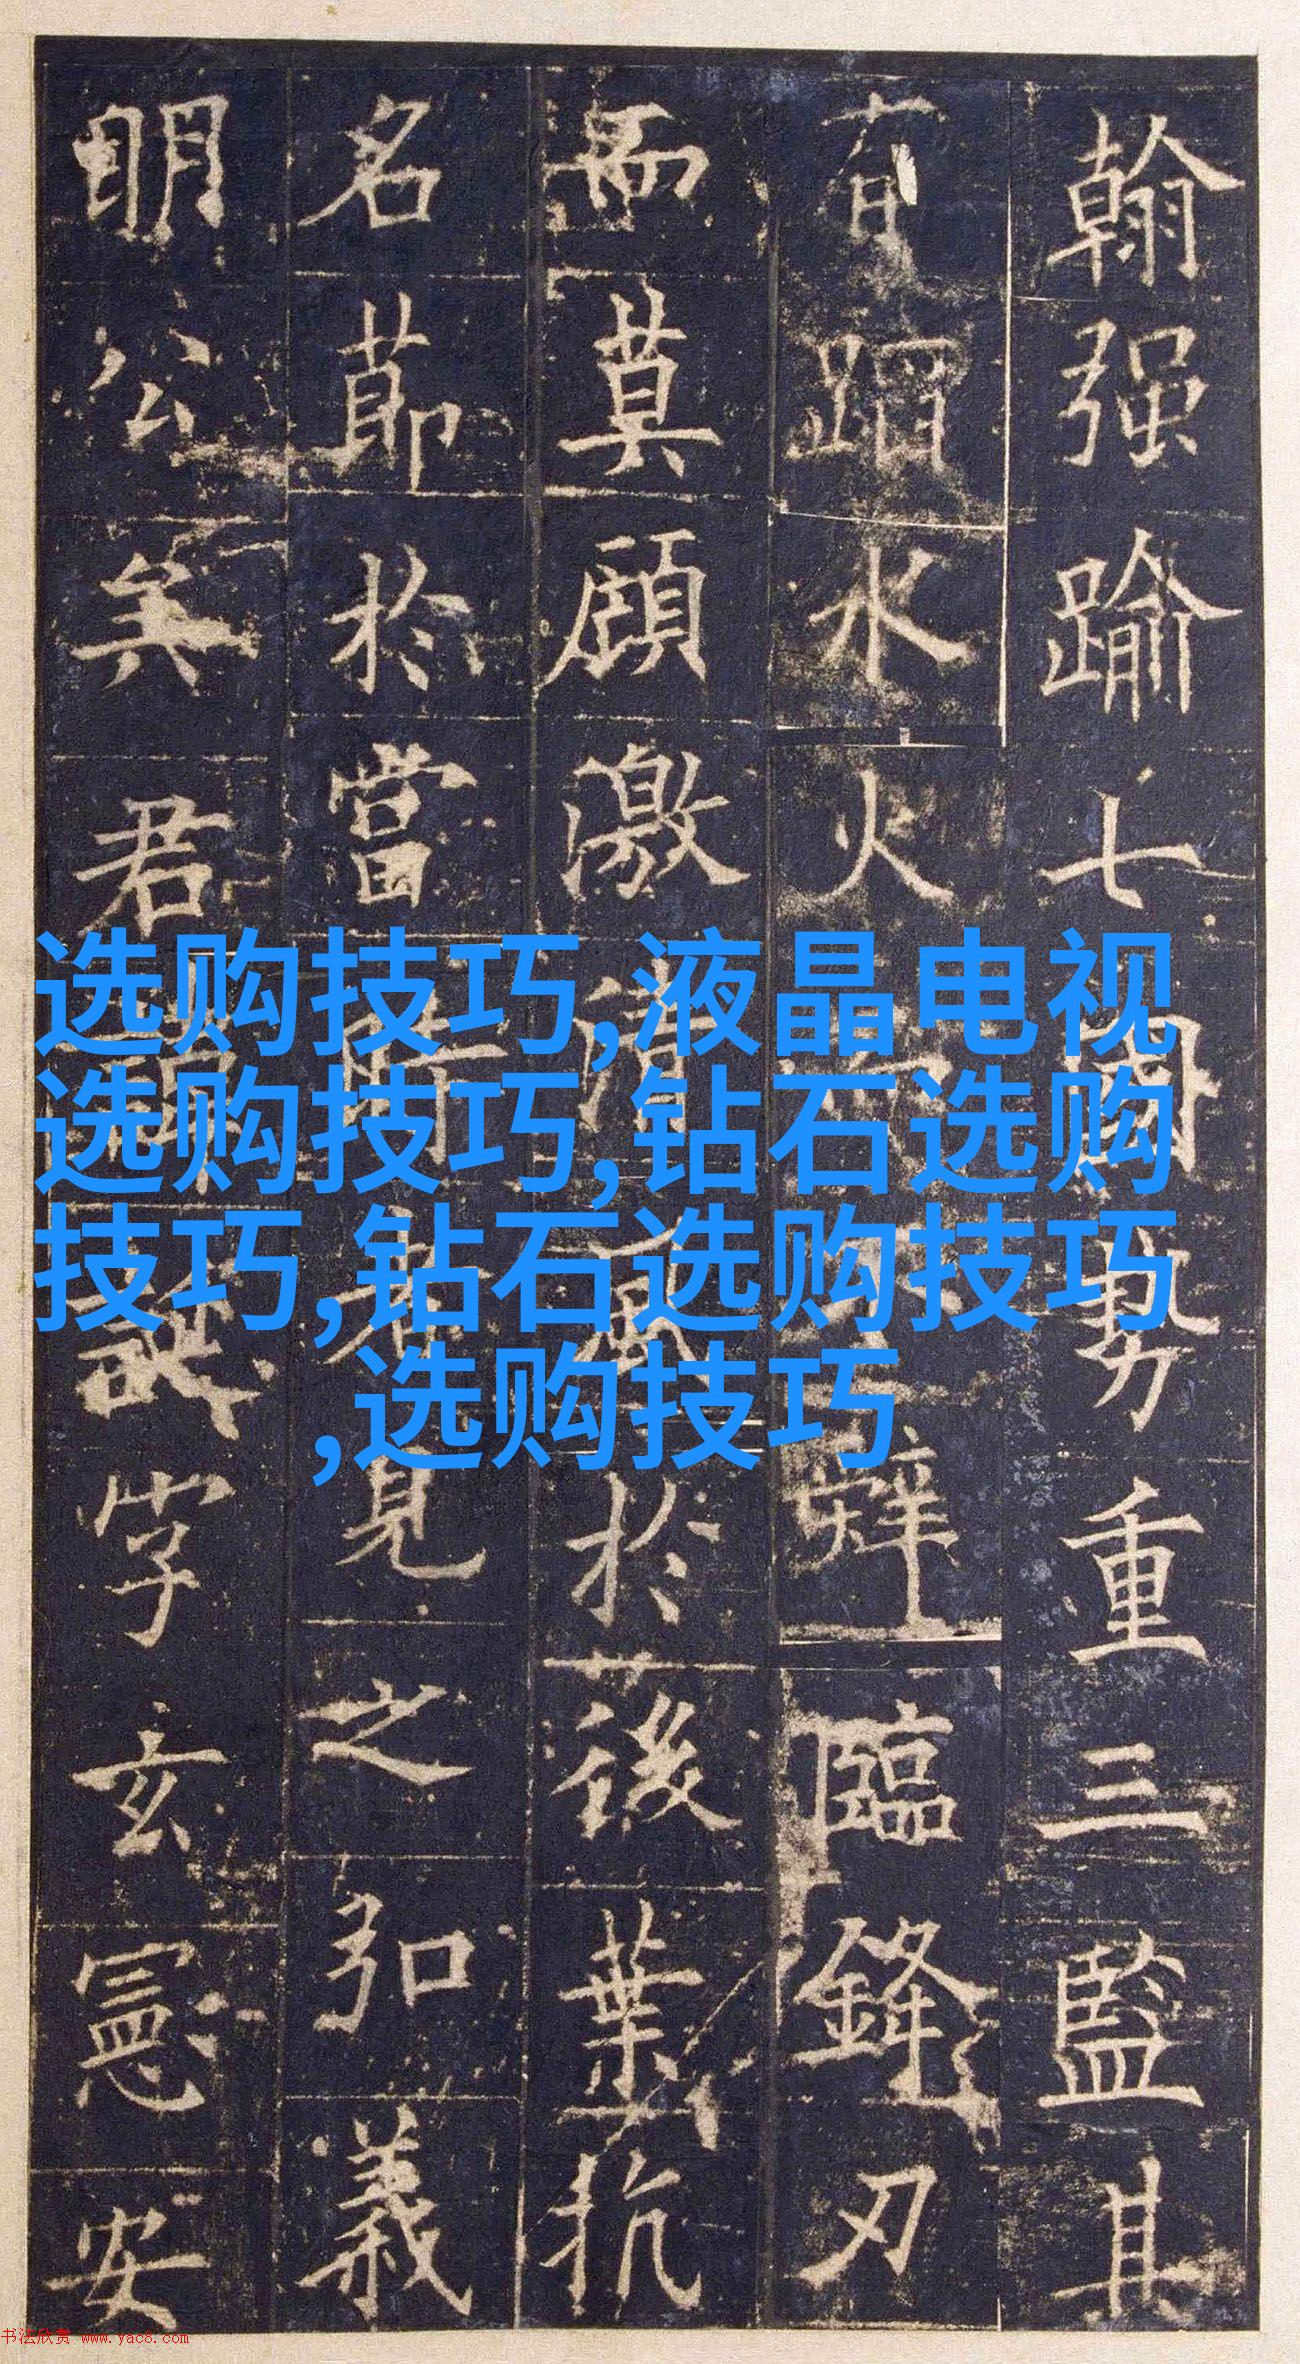 翰强踰七國勢重三監其
有蹈水火而不辭臨鋒刃
而莫顧激清風於後葉抗
名節於當時者見之弘義
明公矣君諱誕字玄憲安
选购技巧,液晶电视
选购技巧,钻石选购
技巧,钻石选购技巧
,选购技巧
书法欣赏 www.yac8.com